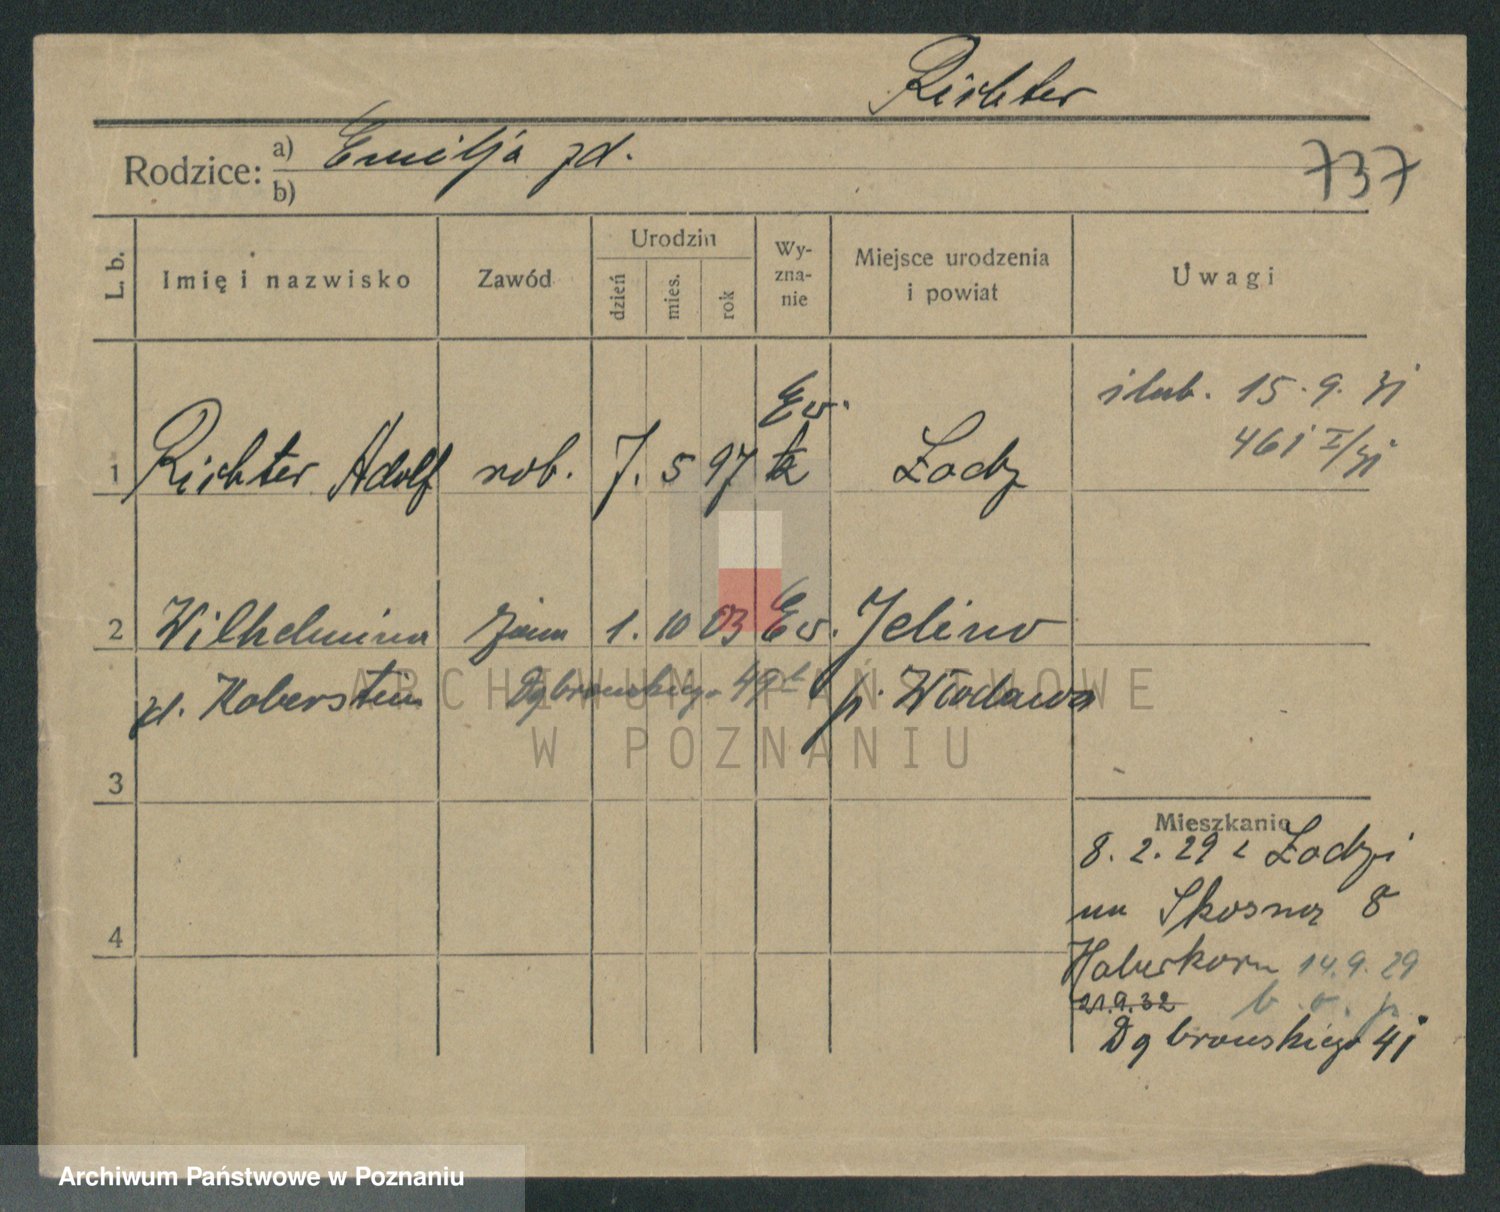 Richter
Rodzice: a) Emilja zd.
b)
737
L. b. Imię i nazwisko Zawód Urodzin dzień mies. rok Wy-zna-nie Miejsce urodzenia i powiat Uwagi
ślub. 15.9.31
461 I/31
1 Richter Adolf rob. 7. 5 97 Ew. Łodz
2 Wilhelmina żona 1. 10 03 Ew. Jelino
zd. Haberstein Dąbrowskiego 49 p. Włodawa
ARCHIWUM PAŃSTWOWE
W POZNANIU
3
Mieszkanie
8.2.29 z Łodzi
na Skosną 8
4
Haberkorn 14.9.29
21.9.32 b. o. p.
Dąbrowskiego 41
Archiwum Państwowe w Poznaniu